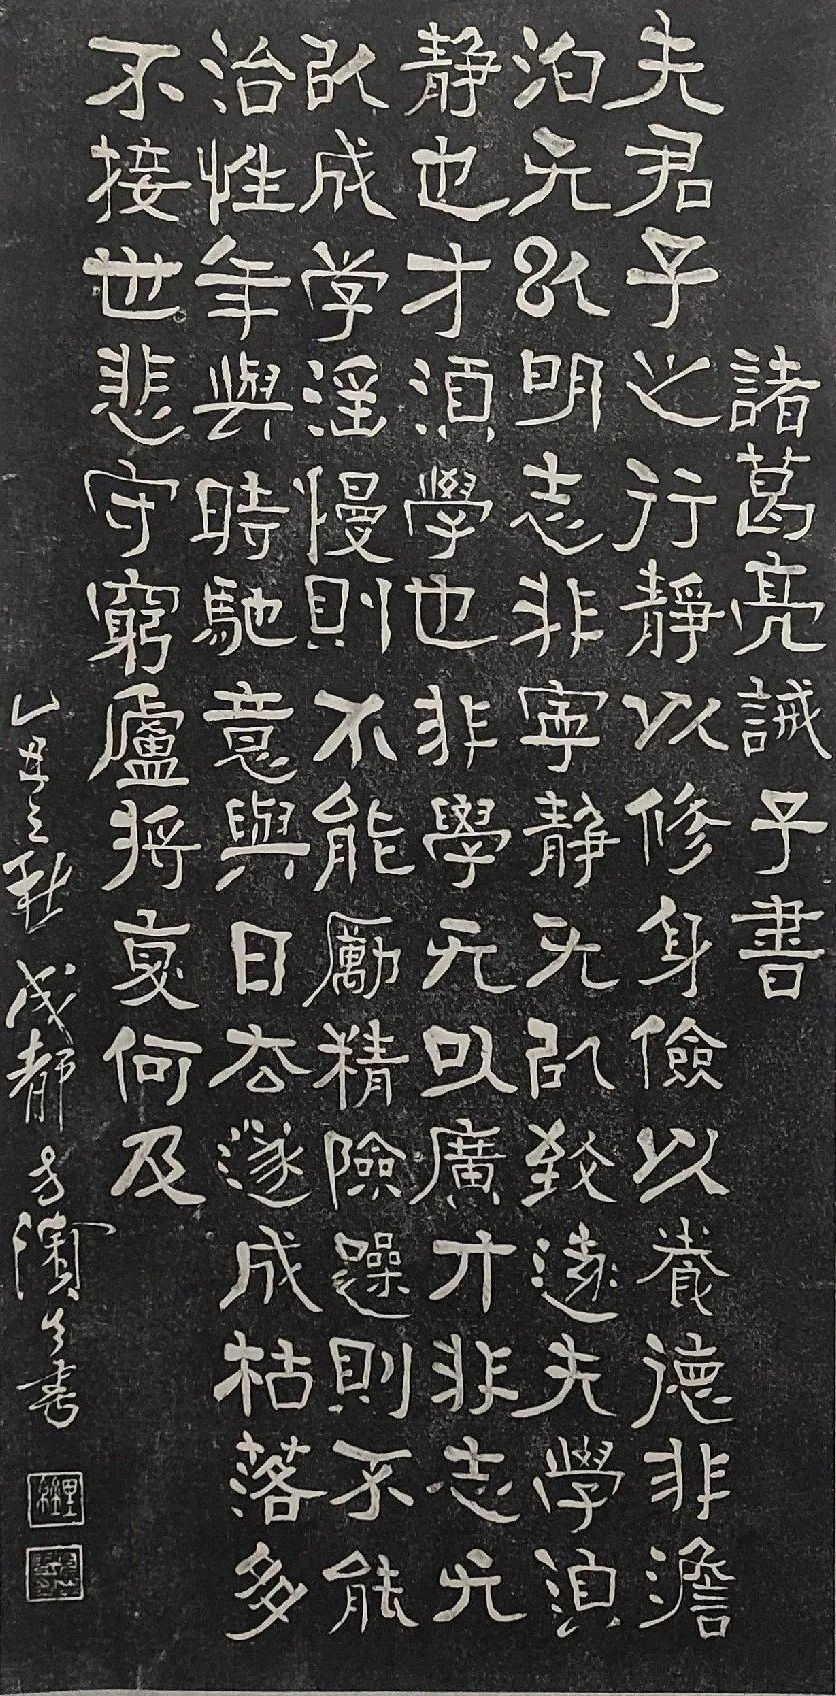 諸葛亮誡子書
夫君子之行靜以修身儉以養德非澹
泊无以明志非寧靜无以致遠夫學須
静也才須學也非學无以廣才非志无
以成学滛慢則不能勵精險躁則不能
治性年與時馳意與日去遂成枯落多
不接世悲守窮廬將复何及
乙丑之秋成都方濱生書